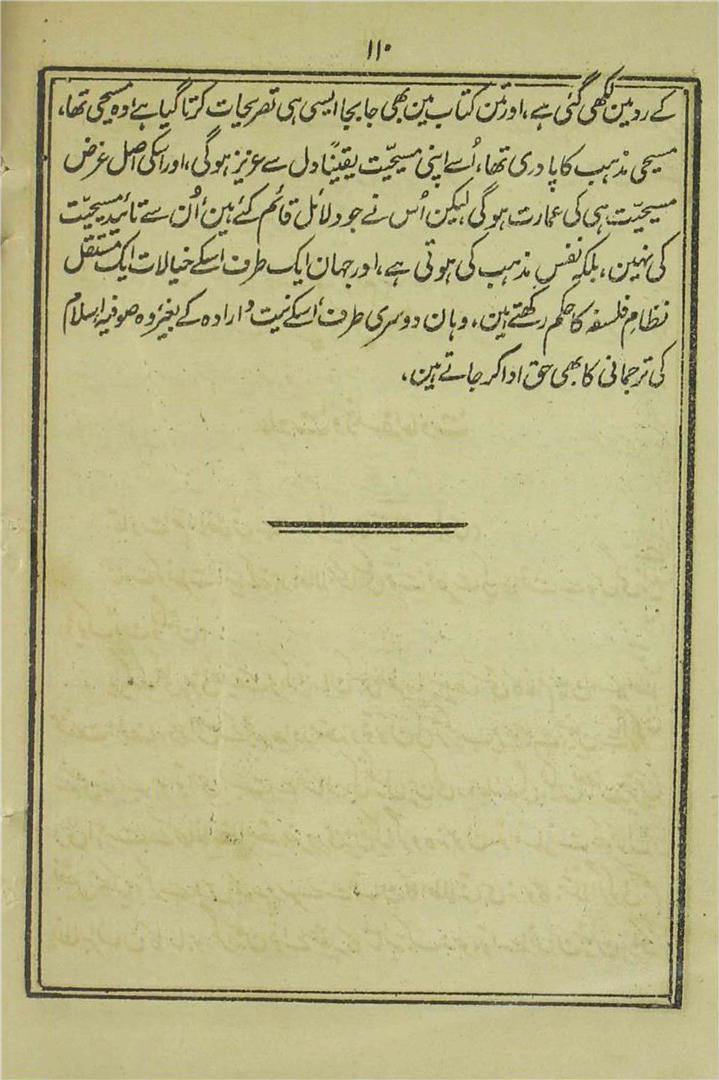 ۱۱۰
کے رد مین لکھی گئی ہے، اور متن کتاب مین بھی جابجا ایسی ہی تصریحات کرتا گیا ہے، وہ مسیحی تھا،
مسیحی مذہب کا پادری تھا، اُسے اپنی مسیحیّت یقینًا دل سے عزیز ہوگی، اور اسکی اصل غرض
مسیحیّت ہی کی عمارت ہوگی لیکن اُس نے جو دلائل قائم کئے ہین، اُن سے تائید مسیحیّت
کی نہین، بلکہ نفس مذہب کی ہوتی ہے، اور جہان ایک طرف اسکے خیالات ایک مستقل
نظامِ فلسفہ کا حکم رکھتے ہین، وہان دوسری طرف، اسکے نیت و ارادہ کے بغیر، وہ صوفیہ اسلام
کی ترجمانی کا بھی حق ادا کر جاتے ہین،